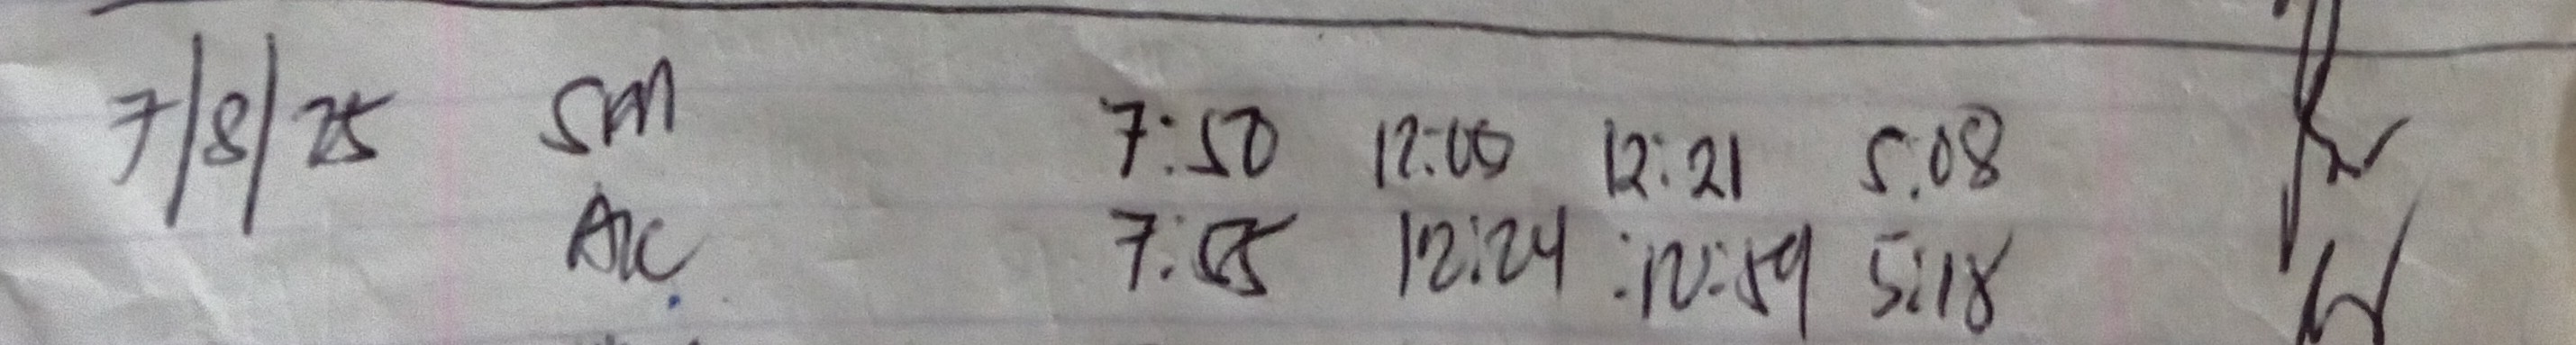 7/8/25 SM 7:50 12:00 12:21 5:08
AK 7:55 12:24 :12:59 5:18